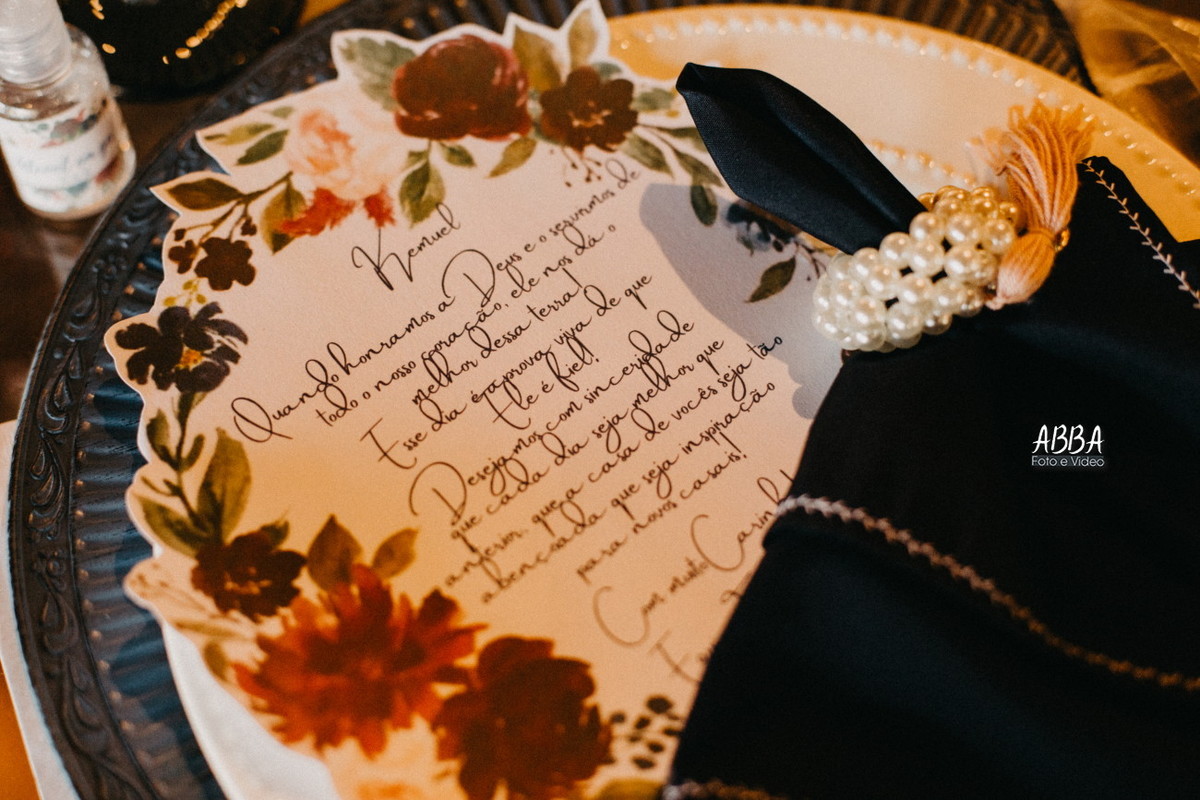 Kemuel
Quando honramos a Deus e o servirmos de
todo o nosso coração, ele nos dá o
melhor dessa terra!
Esse dia é a prova viva de que
Ele é fiel!
Desejamos com sinceridade
que cada dia seja melhor que
anterior, que a casa de vocês seja tão
abençoada que seja inspiração
para novos casais!
Com muito Carinh
ABBA
Foto e Vídeo